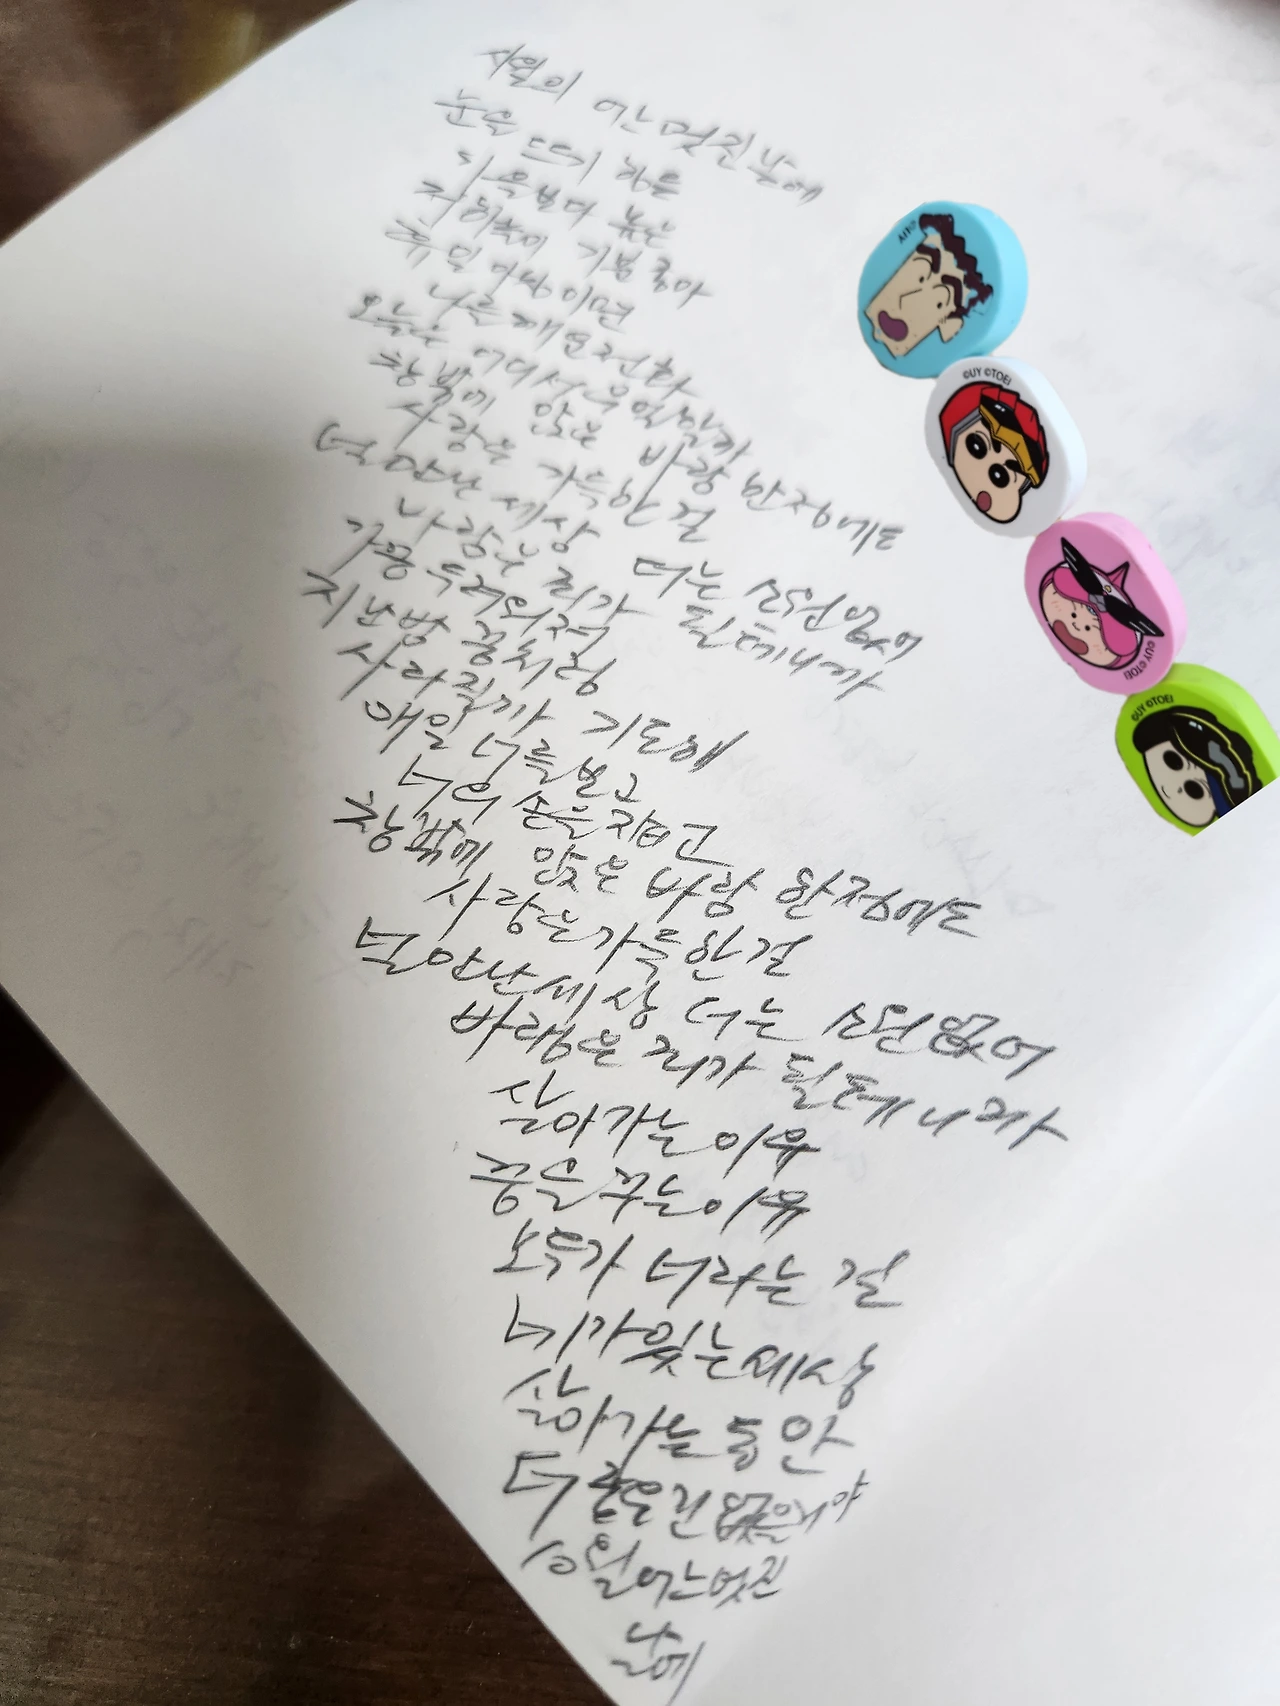 시월의 어느 멋진 날에
눈을 뜨기 힘든
가을보다 높은
저 하늘이 기분 좋아
휴일 아침이면
나를 깨운 전화
오늘은 어디서 무얼 할까
창밖에 앉은 바람 한점에도
사랑은 가득한 걸
널 만난 세상 더는 소원 없어
바램은 죄가 될테니까
가끔 두려워져
지난밤 꿈처럼
사라질까 기도해
매일 너를 보고
너의 손을 잡고
창밖에 앉은 바람 한점에도
사랑은 가득한 걸
널 만난 세상 더는 소원 없어
바램은 죄가 될테니까
살아가는 이유
꿈을 꾸는 이유
모두가 너라는 걸
네가 있는 세상
살아가는 동안
더 좋은 건 없을거야
10월 어느 멋진
날에
©UY
©UY ©TOEI
©UY ©TOEI
©UY ©TOEI